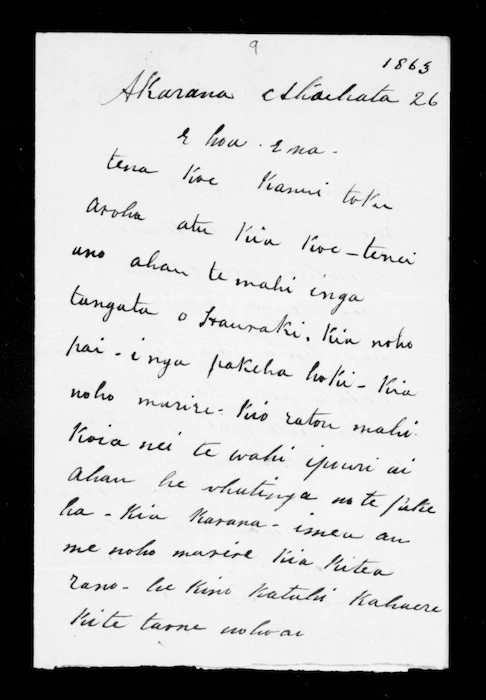 9
1863
Akarana Akuhata 26
E hoa. E ma.
tena koe kanui toku
aroha atu kia koe - tenei
ano ahau te mahi inga
tangata o Hauraki. Kia noho
pai - i nga pakeha hoki - kia
noho marire. Kio ratou mahi.
Koia nei te wahi ipouri ai
ahau he whatinga no te pake
ha - kia Karana - imea au
me noho marire kia kitea
rano - he kino katahi kahaere
kite taone nohoai